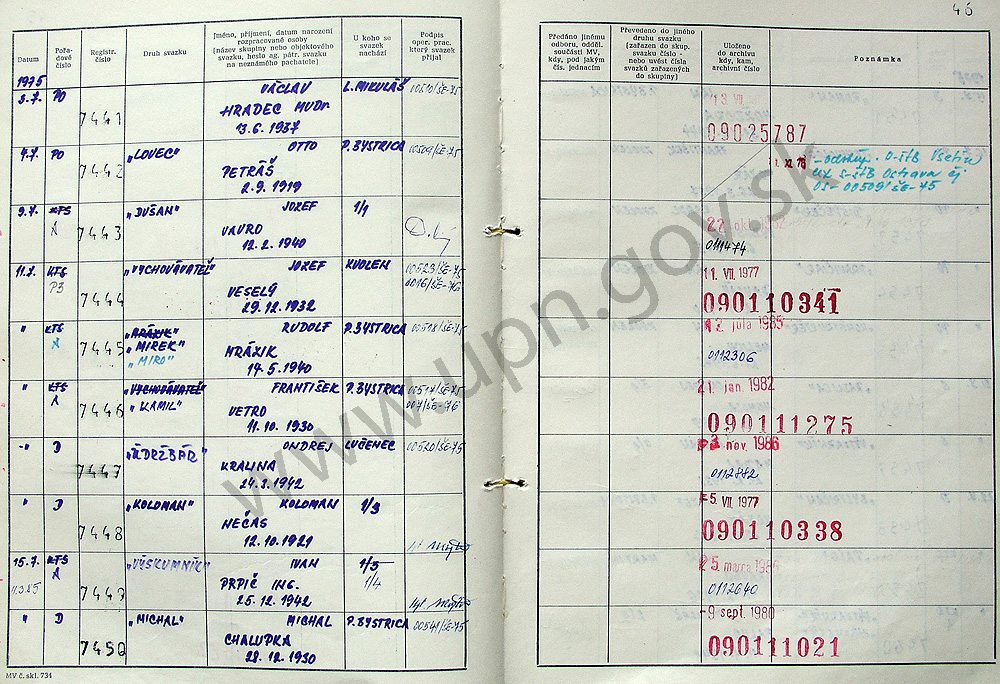 46
Datum
Pořadové číslo
Registr. číslo
Druh svazku
Jméno, příjmení, datum narození
rozpracované osoby
(název skupiny nebo objektového
svazku, heslo ag. pátr. svazku
na neznámého pachatele)
U koho se
svazek
nachází
Podpis
oper. prac.
který svazek
přijal
Předáno jinému
odboru, odděl.
součásti MV,
kdy, pod jakým
čís. jednacím
Převedeno do jiného
druhu svazku
(zařazen do skup.
svazku číslo -
nebo uvést čísla
svazků zařazených
do skupiny)
Uloženo
do archivu
kdy, kam,
archivní číslo
Poznámka
1975
3.7. PO 7441 VÁCLAV L. MIKULÁŠ 00510/ŠE-75
HRADEC MUDr.
13.6. 1937
13. VII.
09025787
4.7. PO 7442 „LOVEC" OTTO P. BYSTRICA 00509/ŠE-75
PETRÁŠ
2.9. 1919
O-ŠtB Vsetín
S-ŠtB Ostrava čj
OS-00509/ŠE-75
9.7. KTS A 7443 „DUŠAN" JOZEF 1/1
VAVRO
12.2. 1940
22. okt. 1982
0111474
11.7. KTS PS 7444 „VYCHOVÁVATEĽ" JOZEF ZVOLEN 00523/ŠE-75
VESELÝ 0016/ŠE-76
29.12. 1932
11. VII. 1977
090110341
" KTS A 7445 „MRÁZIK" RUDOLF P. BYSTRICA 00518/ŠE-75
„MIREK" MRÁZIK
„MIRO" 14.5. 1940
12. júla 1985
0112306
" KTS A 7446 „VYCHOVÁVATEĽ" FRANTIŠEK P. BYSTRICA 00517/ŠE-75
„KAMIL" VETRO 007/ŠE-76
11.10. 1930
21. jan. 1982
090111275
-"- D 7447 „ÚDRŽBÁR" ONDREJ LUČENEC 00520/ŠE-75
KRALINA
24.3. 1942
3. nov. 1986
0112882
" D 7448 „KOLOMAN" KOLOMAN 1/3
NEČAS
12.10. 1921
-5. VII. 1977
090110338
15.7. KTS A 7449 „VÝSKUMNÍK" IVAN 1/5
11.3.85 PRPIČ ING. 1/4
25.12. 1942
25. marca 1986
0112640
" D 7450 „MICHAL" MICHAL P. BYSTRICA 00541/ŠE-75
CHALUPKA
28.12. 1930
-9. sept. 1980
090111021
MV č. skl. 734
www.upn.gov.sk